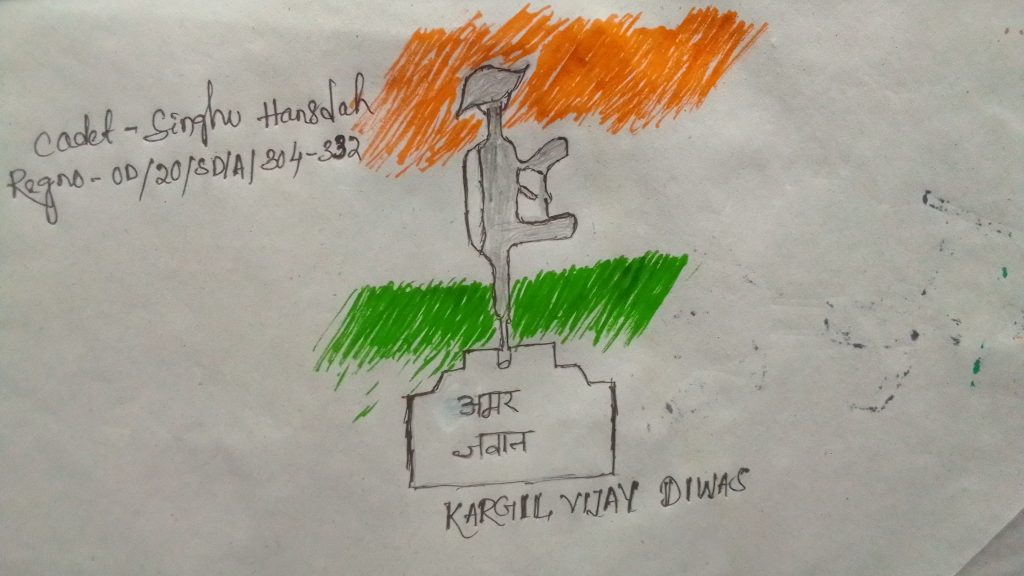 Cadet - Singhu Hansdah
Regno - OD/20/SD/A/304-332
अमर
जवान
KARGIL VIJAY DIWAS